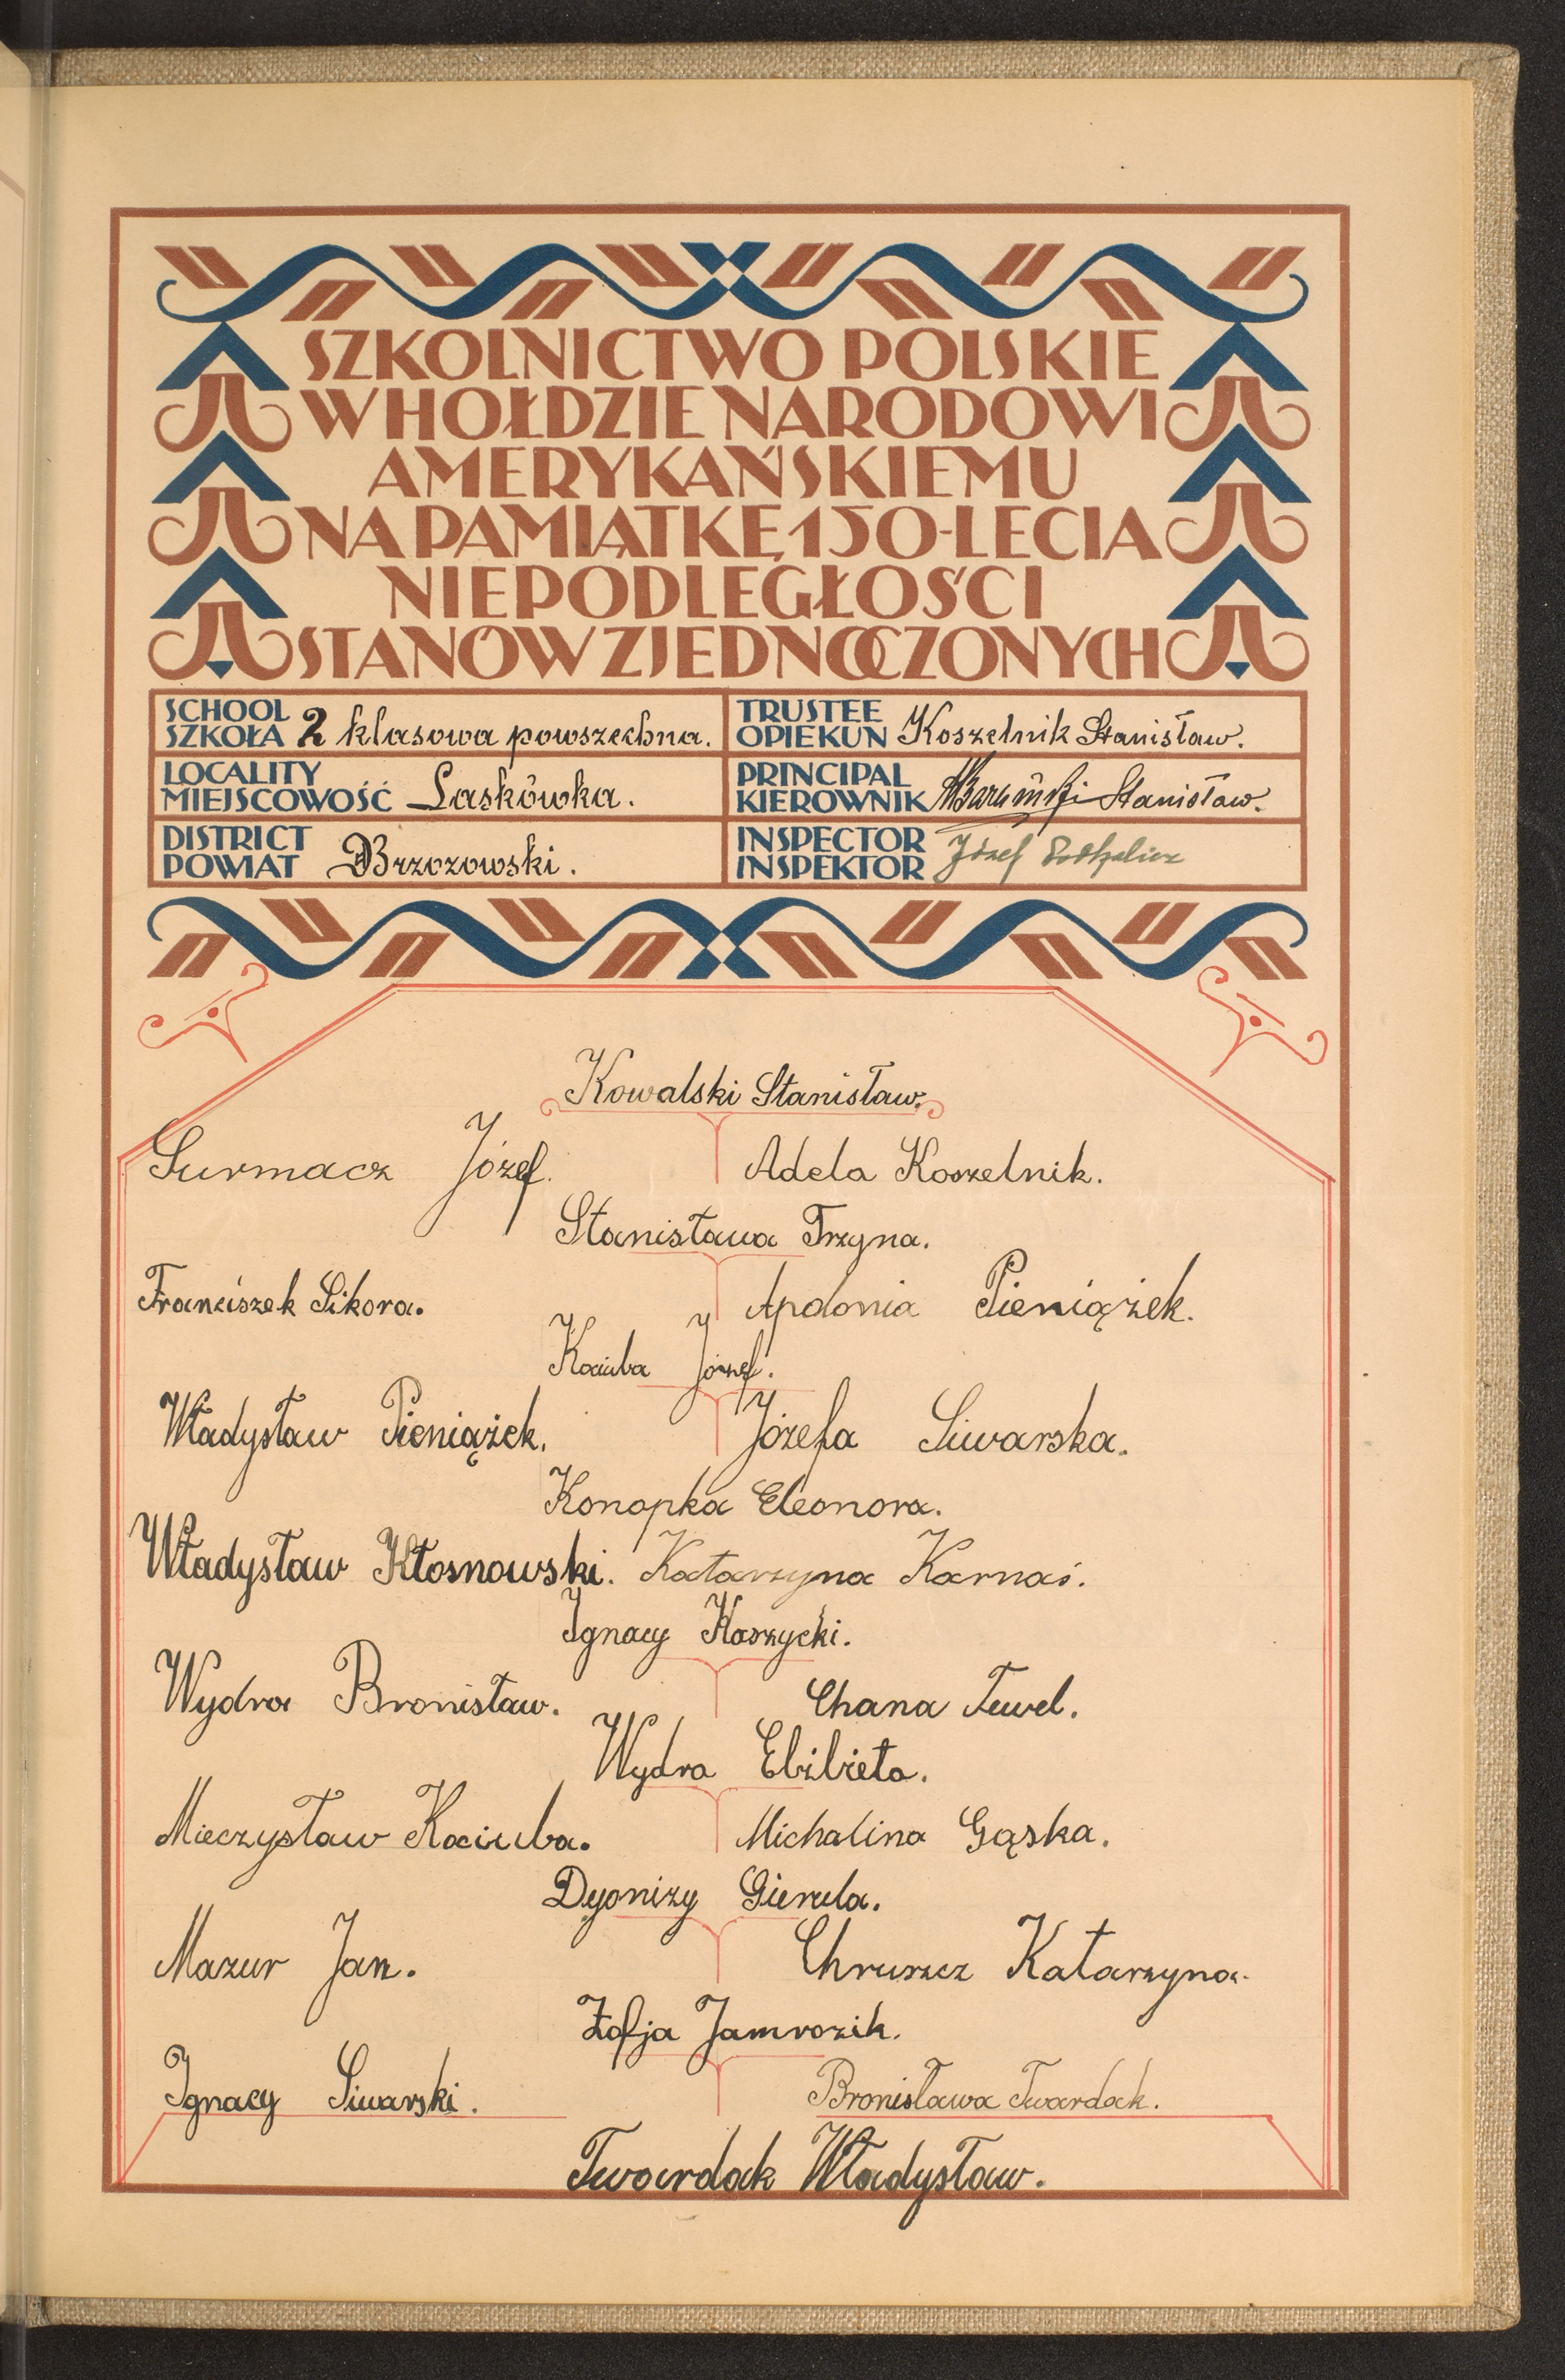 SZKOLNICTWO POLSKIE
W HOŁDZIE NARODOWI
AMERYKAŃSKIEMU
NA PAMIĄTKĘ 150-LECIA
NIEPODLEGŁOŚCI
STANÓW ZJEDNOCZONYCH
SCHOOL
SZKOŁA 2 klasowa powszechna.
TRUSTEE
OPIEKUN Koszelnik Stanisław.
LOCALITY
MIEJSCOWOŚĆ Laskówka.
PRINCIPAL
KIEROWNIK Stanisław.
DISTRICT
POWIAT Brzozowski.
INSPECTOR
INSPEKTOR Józef
Kowalski Stanisław.
Surmacz Józef. Adela Koszelnik.
Stanisława Trzyna.
Franciszek Sikora. Apolonia Pieniążek.
Kociuba Józef.
Władysław Pieniążek. Józefa Siwarska.
Konopka Eleonora.
Władysław Kłosnowski. Katarzyna Karnas.
Ignacy Koszycki.
Wydra Bronisław. Chana Tewel.
Wydra Elżbieta.
Mieczysław Kociuba. Michalina Gąska.
Dyonizy Gierula.
Mazur Jan. Chruszcz Katarzyna.
Zofja Jamrozik.
Ignacy Siwarski. Bronisława Twardak.
Twardak Władysław.